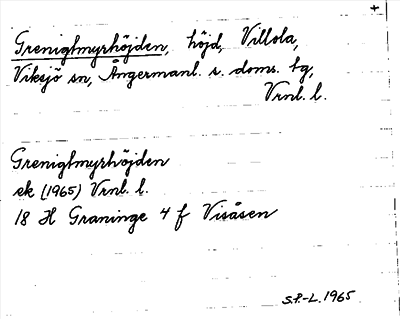 Grenigtmyrhöjden, höjd, Villola,
Viksjö sn, Ångermanl. s. doms. tg,
Vrnl. l.
Grenigtmyrhöjden
ek (1965) Vrnl. l.
18 H Graninge 4 f Visåsen
S.P.-L. 1965